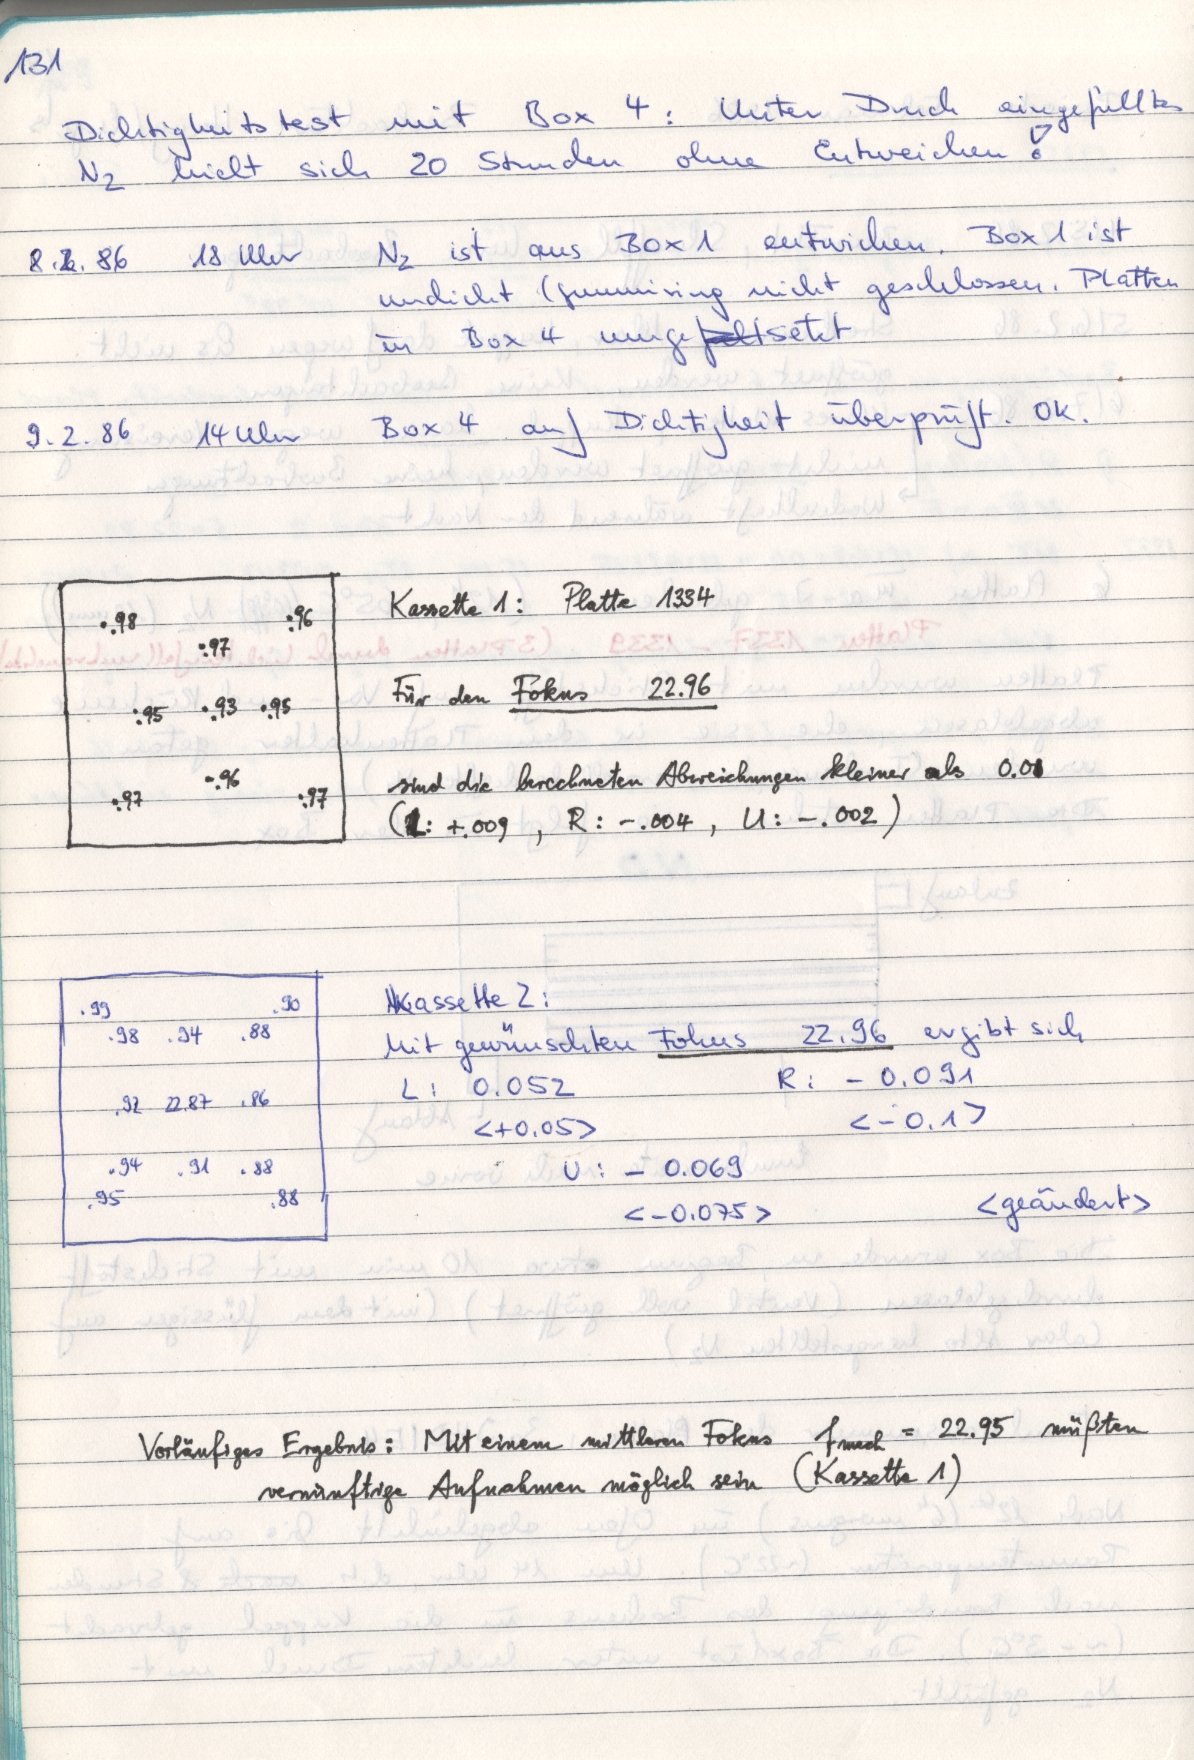 131
Dichtigkeitstest mit Box 4: Unter Druck eingefülltes
N2 hielt sich 20 Stunden ohne Entweichen!
8.2.86 18 Uhr N2 ist aus Box 1 entwichen. Box 1 ist
undicht (Gummiring nicht geschlossen. Platten
in Box 4 umgesetzt
9.2.86 14 Uhr Box 4 auf Dichtigkeit überprüft. OK.
.98 .96
.97
.95 .93 .95
.96
.97 .97
Kassette 1: Platte 1334
Für den Fokus 22.96
sind die berechneten Abweichungen kleiner als 0.01
(L: +.009, R: -.004, U: -.002)
.99 .90
.98 .94 .88
.92 22.87 .86
.94 .91 .88
.95 .88
Kassette 2:
Mit gewünschten Fokus 22.96 ergibt sich
L: 0.052 R: - 0.091
<+0.05> <-0.1>
U: - 0.069
<-0.075> <geändert>
Vorläufiges Ergebnis: Mit einem mittleren Fokus fmech = 22.95 müßten
vernünftige Aufnahmen möglich sein (Kassette 1)